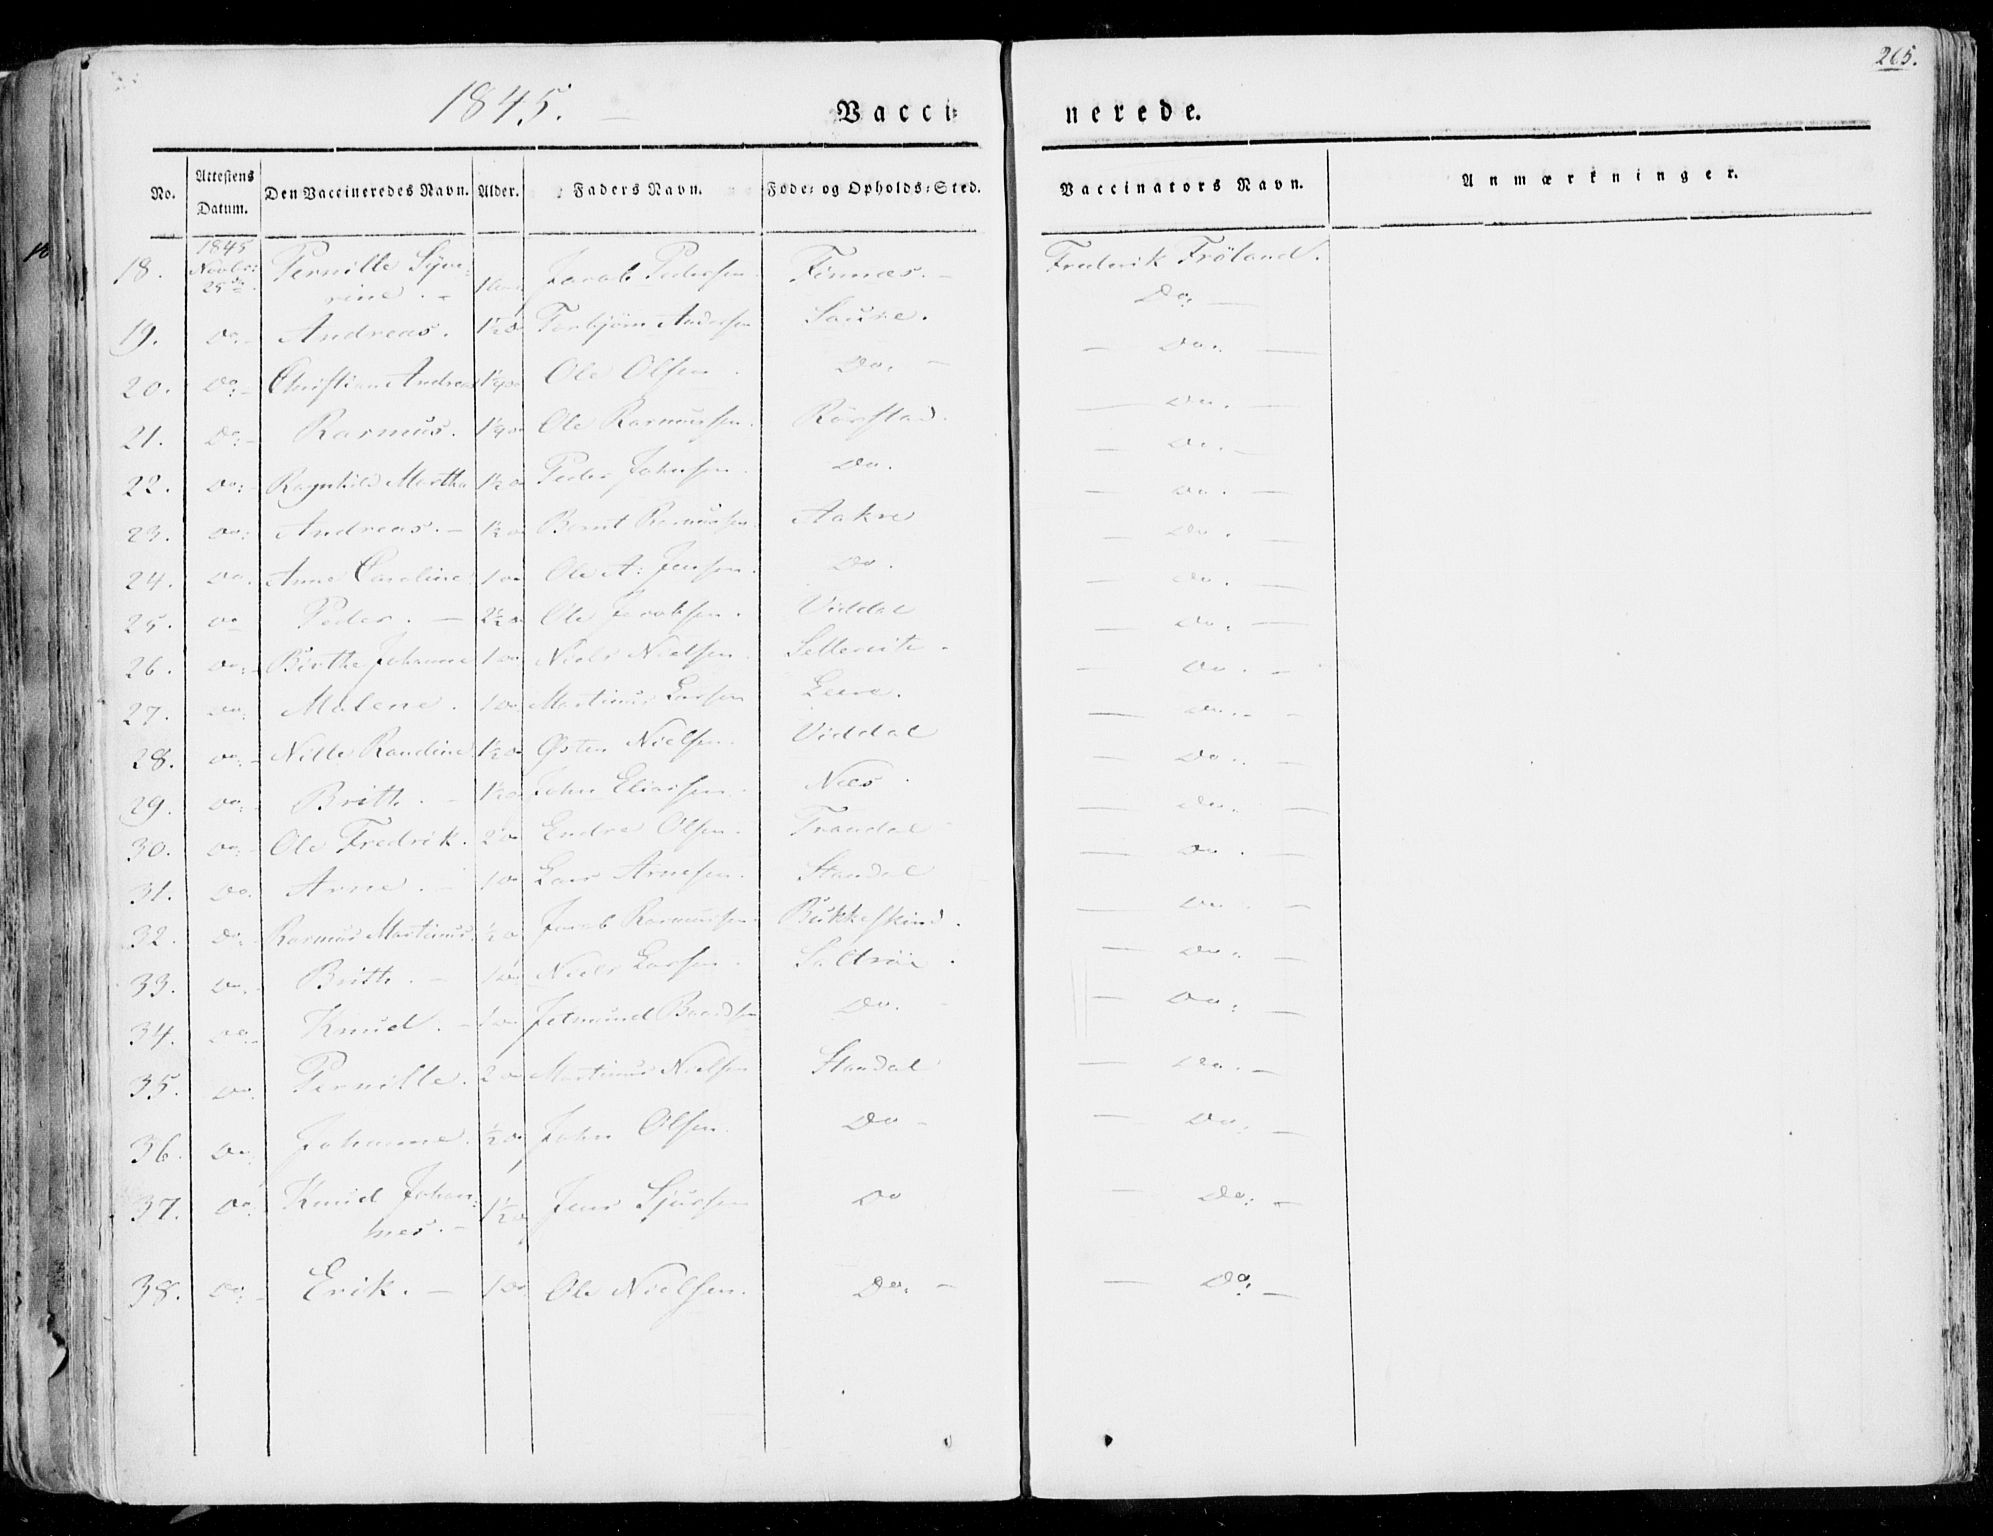 265.
1845. — Vacci= nerede.
No. Attestens Datum. Den Vaccineredes Navn. Alder. Faders Navn. Føde= og Opholds=Sted. Vaccinators Navn. Anmærkninger.
1845
18. Novbr: 25de Pernille Syve- Jacob Pedersen Finnæs. — Frederik Fröland.
rine. — Do: —
19. Do. — Andreas. Torbjørn Andersen Saure. — Do. —
20. Do: — Christian Andreas Ole Olsen Do. — — Do. —
21. Do: — Rasmus. Ole Rasmussen. Rörstad. Do. —
22. Do: — Ragnhild Martha Peder Johnsen. Do. — Do. —
23. Do: Andreas. — Bernt Rasmussen. Aakre — Do. —
24. Do. Anne Caroline Ole A: Jensen. Do. — Do. —
25. Do Peder. — Ole Jacobsen. Viddal — Do. —
26. Do: — Birthe Johanne Niels Nielsen. — Do. —
27. Do: Malene. Martinus Larsen — Do. —
28. Do: — Nille Randine Østen Nielsen. Viddal — Do. —
29. Do: — Brith. — John Eliassen. Næs. — Do. —
30. Do: — Ole Fredrik. 2 Do Endre Olsen. Trandal — Do. —
31. Do. Arne. — 1 Do Lars Arnesen. Standal — Do. —
32. Do. Rasmus Martinus Jacob Rasmussen. Bukkeskind. — Do. —
33. Do. — Brith. — Niels Larsen. — Do. —
34. Do. — Knud. — Jetmund Baardsen Do. — — Do: —
35. Do. Pernille. 2 Do Martinus Nielsen Standal — Do. —
36. Do. Johanne. 1/2 Do John Olsen. Do — — Do. —
37. Do. Knud Johan- 1 1/2 Do Jens Sjursen Do — Do: —
nes. —
38. Do: — Erik. — 1 Do Ole Nielsen. Do: — — Do: —